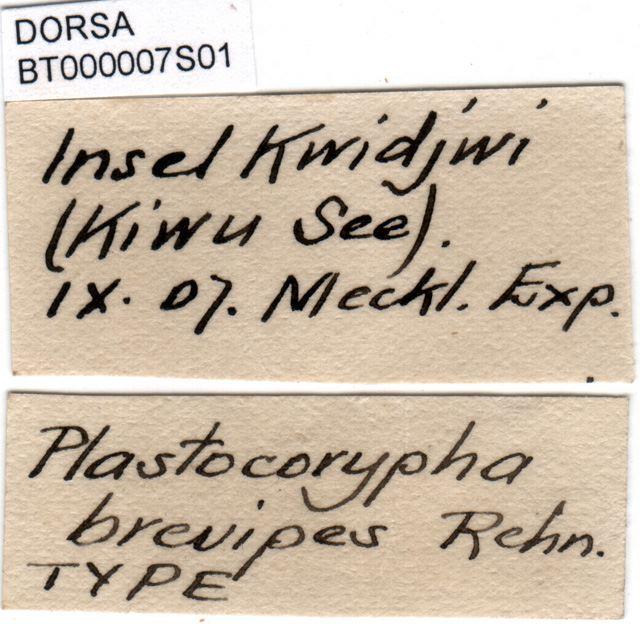 DORSA
BT000007S01
Insel Kwidjwi
(Kiwu See).
IX. 07. Meckl. Exp.
Plastocorypha
brevipes Rehn.
TYPE